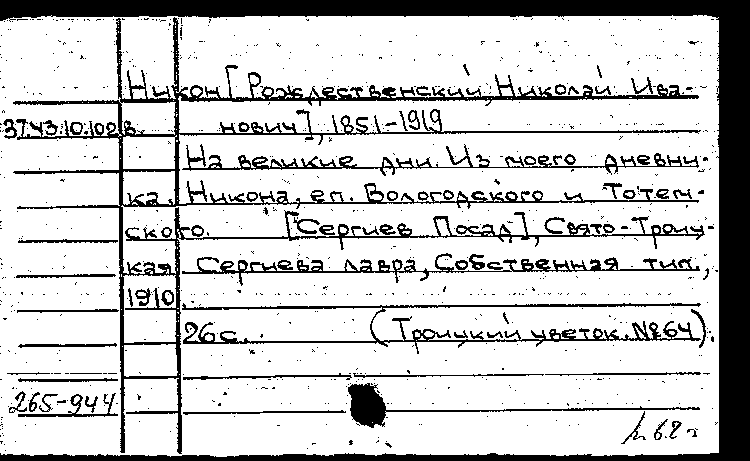 Никон [Рождественский, Николай Ива-
37.43.10.102 в. нович], 1851-1919
На великие дни. Из моего дневни-
ка. Никона, еп. Вологодского и Тотем-
ского. [Сергиев Посад], Свято-Троиц-
кая Сергиева лавра, Собственная тип.,
1910.
26 с. (Троицкий цветок. №64).
265-944